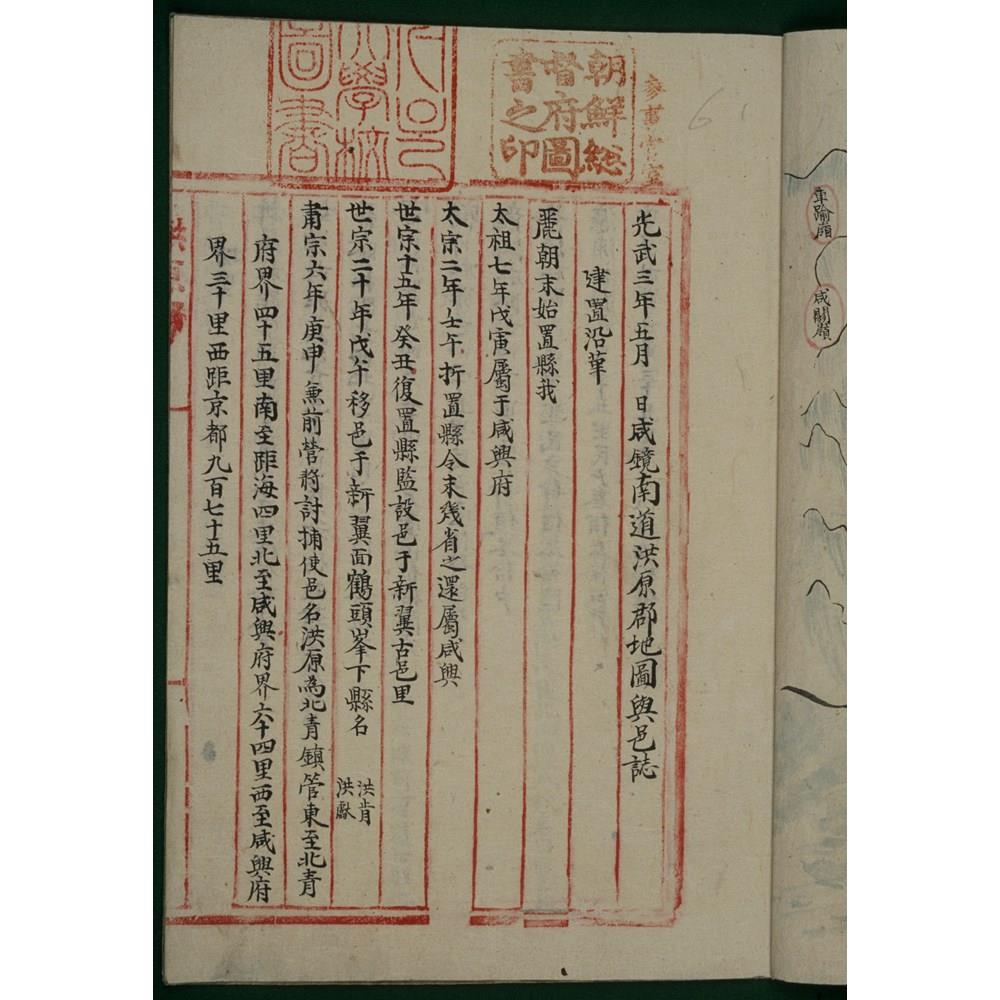 參書官室
朝鮮總
督府圖
書之印
大學校
圖書
光武三年五月 日咸鏡南道洪原郡地圖與邑誌
建置沿革
麗朝末始置縣我
太祖七年戊寅屬于咸興府
太宗二年壬午折置縣令末幾省之還屬咸興
世宗十五年癸丑復置縣監設邑于新翼古邑里
世宗二十年戊午移邑于新翼面鶴頭峯下縣名 洪肯 洪獻
肅宗六年庚申兼前營將討捕使邑名洪原為北青鎮管東至北青
府界四十五里南至距海四里北至咸興府界六十四里西至咸興府
界三十里西距京都九百七十五里
咸關嶺